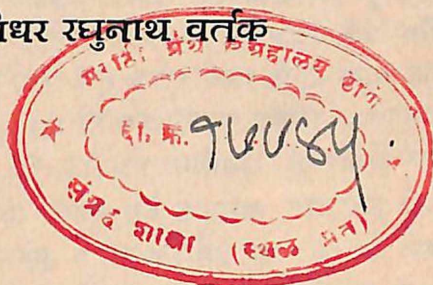 धर रघुनाथ वर्तक
मराठी ग्रंथ संग्रहालय ठाणे
दा. क्र.
संग्रह शाखा (स्थळ प्रत)